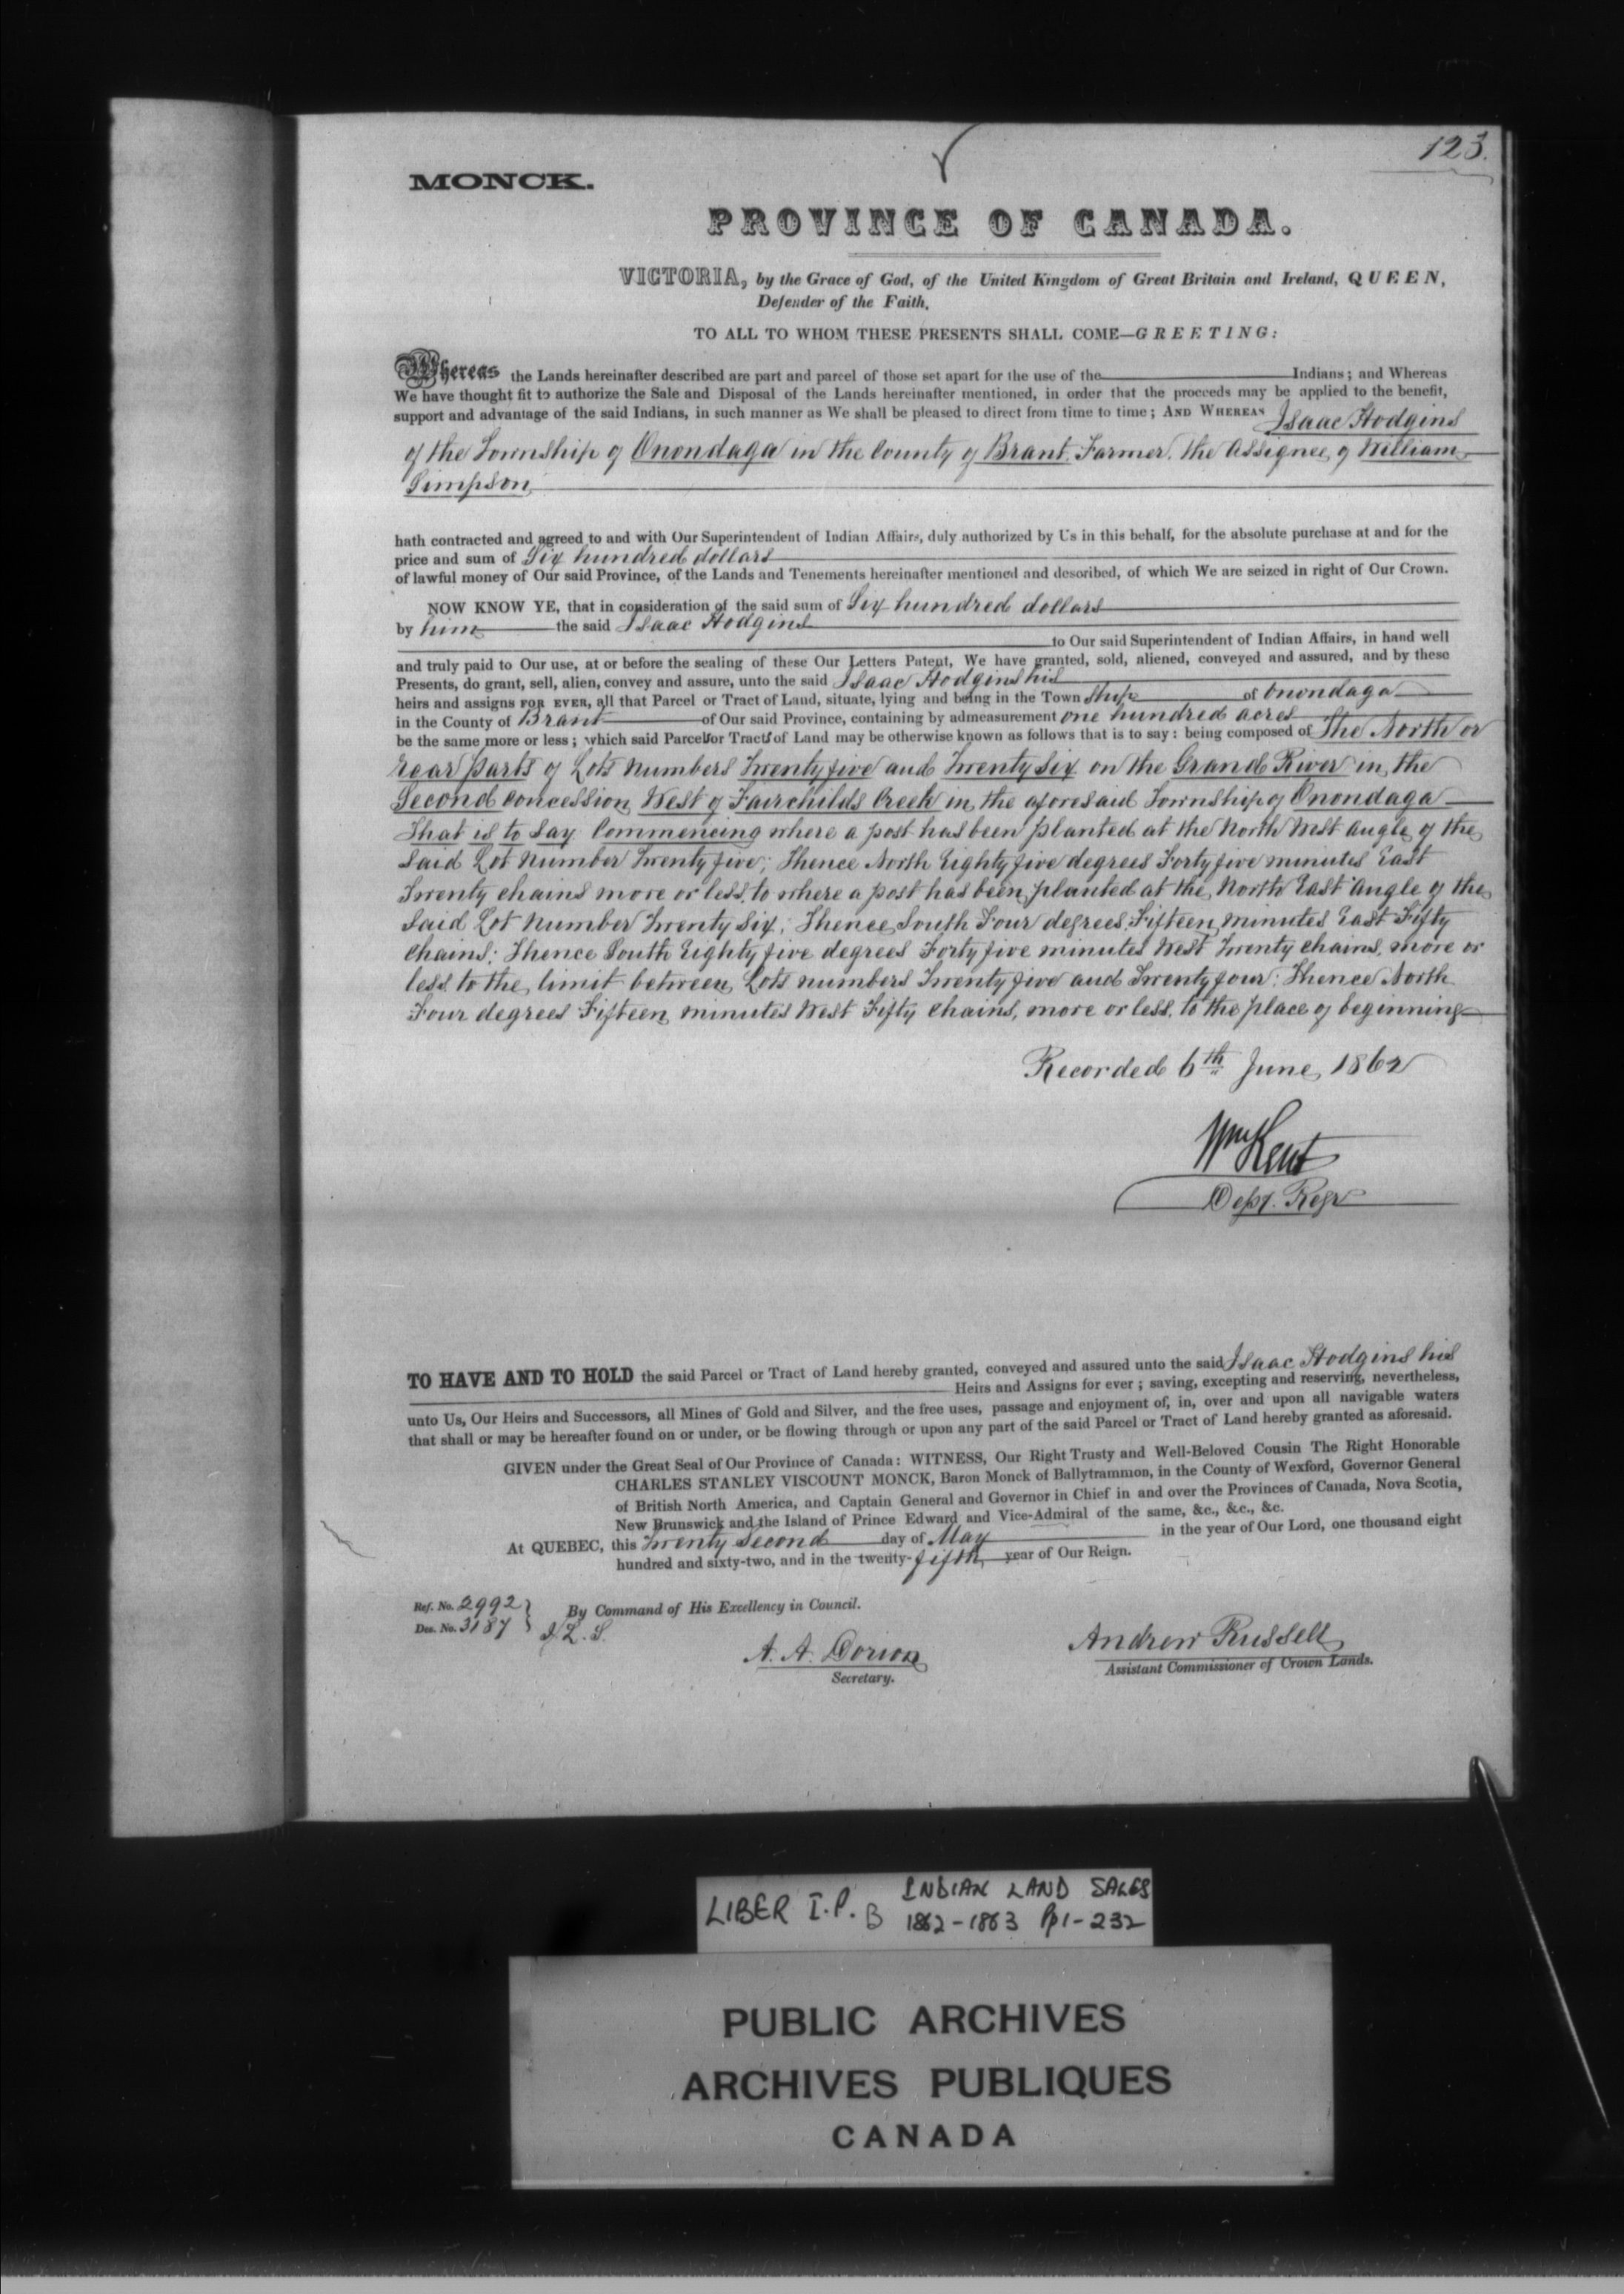 123.
MONCK.
PROVINCE OF CANADA.
VICTORIA, by the Grace of God, of the United Kingdom of Great Britain and Ireland, QUEEN,
Defender of the Faith,
TO ALL TO WHOM THESE PRESENTS SHALL COME—GREETING:
Whereas the Lands hereinafter described are part and parcel of those set apart for the use of the Indians; and Whereas
We have thought fit to authorize the Sale and Disposal of the Lands hereinafter mentioned, in order that the proceeds may be applied to the benefit,
support and advantage of the said Indians, in such manner as We shall be pleased to direct from time to time; AND WHEREAS Isaac Hodgins
of the Township of Onondaga in the County of Brant. Farmer. the Assignee of William
Simpson
hath contracted and agreed to and with Our Superintendent of Indian Affairs, duly authorized by Us in this behalf, for the absolute purchase at and for the
price and sum of Six hundred dollars
of lawful money of Our said Province, of the Lands and Tenements hereinafter mentioned and described, of which We are seized in right of Our Crown.
NOW KNOW YE, that in consideration of the said sum of Six hundred dollars
by him the said Isaac Hodgins
to Our said Superintendent of Indian Affairs, in hand well
and truly paid to Our use, at or before the sealing of these Our Letters Patent, We have granted, sold, aliened, conveyed and assured, and by these
Presents, do grant, sell, alien, convey and assure, unto the said Isaac Hodgins his
heirs and assigns FOR EVER, all that Parcel or Tract of Land, situate, lying and being in the Town ship of Onondaga
in the County of Brant of Our said Province, containing by admeasurement one hundred acres
be the same more or less; which said Parcel or Tract of Land may be otherwise known as follows that is to say: being composed of The North or
rear parts of Lots Numbers Twenty five and Twenty Six on the Grand River in the
Second Concession West of Fairchilds Creek in the aforesaid Township of Onondaga
That is to say Commencing where a post has been planted at the North West angle of the
said Lot Number Twenty five; Thence North Eighty five degrees Forty five minutes East
Twenty chains more or less, to where a post has been planted at the North East angle of the
said Lot Number Twenty Six; Thence South Four degrees Fifteen minutes East Fifty
chains; Thence South Eighty five degrees Forty five minutes West Twenty chains, more or
less to the limit between Lots numbers Twenty five and Twenty four; Thence North
Four degrees Fifteen minutes West Fifty chains, more or less, to the place of beginning
Recorded 6th June 1862
Wm Kent
Depy. Regr
TO HAVE AND TO HOLD the said Parcel or Tract of Land hereby granted, conveyed and assured unto the said Isaac Hodgins his
Heirs and Assigns for ever; saving, excepting and reserving, nevertheless,
unto Us, Our Heirs and Successors, all Mines of Gold and Silver, and the free uses, passage and enjoyment of, in, over and upon all navigable waters
that shall or may be hereafter found on or under, or be flowing through or upon any part of the said Parcel or Tract of Land hereby granted as aforesaid.
GIVEN under the Great Seal of Our Province of Canada: WITNESS, Our Right Trusty and Well-Beloved Cousin The Right Honorable
CHARLES STANLEY VISCOUNT MONCK, Baron Monck of Ballytrammon, in the County of Wexford, Governor General
of British North America, and Captain General and Governor in Chief in and over the Provinces of Canada, Nova Scotia,
New Brunswick and the Island of Prince Edward and Vice-Admiral of the same, &c., &c., &c.
At QUEBEC, this Twenty Second day of May in the year of Our Lord, one thousand eight
hundred and sixty-two, and in the twenty-fifth year of Our Reign.
Ref. No. 2992
Des. No. 3187
By Command of His Excellency in Council.
A. A. Dorion
Secretary.
Andrew Russell
Assistant Commissioner of Crown Lands.
LIBER I.P. B INDIAN LAND SALES
1862-1863 Pp 1-232
PUBLIC ARCHIVES
ARCHIVES PUBLIQUES
CANADA